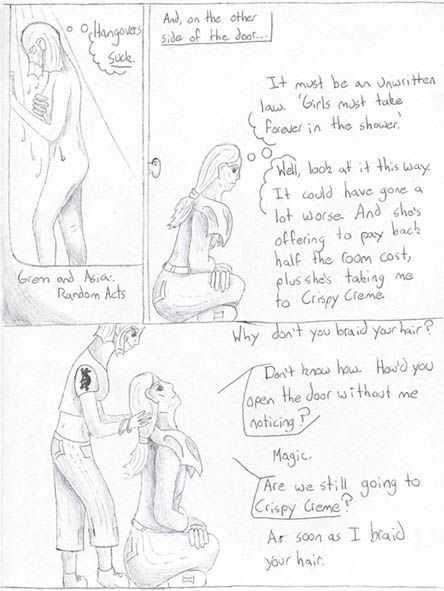 Hangovers
Suck.
And, on the other
side of the door...
It must be an unwritten
law. 'Girls must take
forever in the shower.'
Well, look at it this way.
It could have gone a
lot worse. And she's
offering to pay back
half the room cost,
plus she's taking me
to Crispy Creme.
Random Acts
Why don't you braid your hair?
Don't know how. How'd you
open the door without me
noticing?
Magic.
Are we still going to
Crispy Creme?
As soon as I braid
your hair.